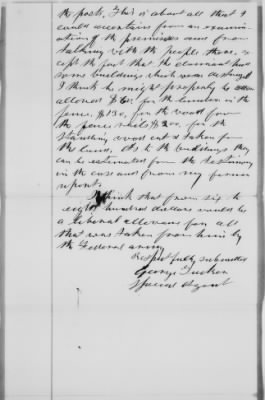 the posts. This is about all that I
could ascertain from an examin-
ation of the premises and from
talking with the people there, ex-
cept the fact that the claimant had
some buildings which were destroyed
I think he might properly be
allowed $60. for the lumber in the
fence, $130, for the wood from
the fence rails $200. for the
standing wood cut & taken from
the land, As to the buildings they
can be estimated from the testimony
in the case and from my former
report.
I think that from six to
eight hundred dollars would be
a liberal allowance for all
that was taken from him by
the Federal army
Respectfully submitted
George Tucker
Special Agent